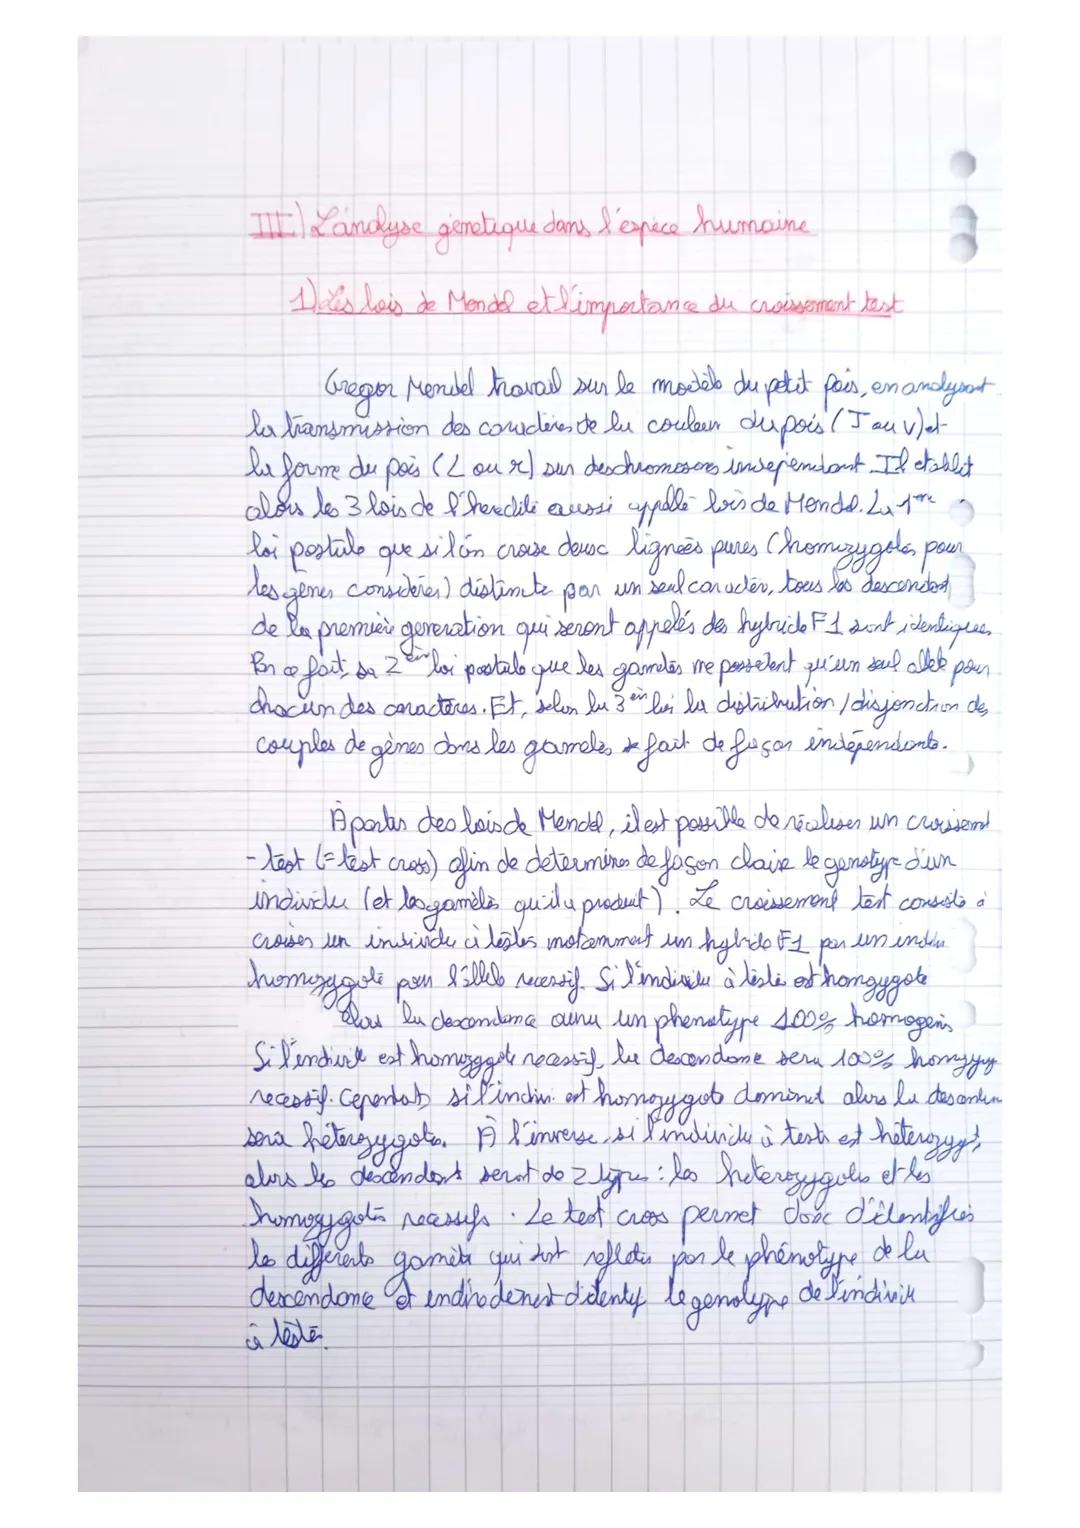 III) L'analyse génétique dans l'espèce humaine
1) Les lois de Mendel et l'importance du croissement test
Gregor Mendel travail sur le modèle du petit pois, en analysant
la transmission des caractères de la couleur du pois (J ou V) et
la forme du pois (L ou r) sur des chromosomes indépendant. Il établit
alors les 3 lois de l'hérédité aussi appellé lois de Mendel. La 1ère
loi postule que si l'on croise deux lignées pures (homozygotes pour
les gènes considérés) distincte par un seul caractère, tous les descendant
de la première génération qui seront appelés des hybride F1 sont identiques.
fait, sa 2ème loi postule que les gamètes ne possèdent qu'un seul allèle pour
chacun des caractères. Et, selon la 3ème loi la distribution / disjonction des
couples de gènes dans les gamètes se fait de façon indépendante.
À partir des lois de Mendel, il est possible de réaliser un croissement
- test (= test cross) afin de déterminer de façon claire le génotype d'un
individu (et les gamètes qu'il a produit). Le croissement test consiste à
croiser un individu à tester notamment un hybride F1 par un
homozygote pour l'allèle récessif. Si l'individu à tester est homozygote
alors la descendance aura un phénotype 100% homogène
Si l'individu est homozygote récessif, la descendance sera 100%
récessif. Cependant, si est homozygote dominant alors la
sera hétérozygote. À l'inverse, si l'individu à tester est hétérozygote,
alors les descendants seront de 2 types : les hétérozygotes et les
homozygotes récessifs. Le test cross permet donc d'identifier
les différents gamètes qui sont reflétés par le phénotype de la
descendance et le génotype de l'individu
à tester.